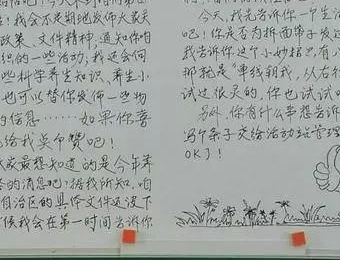 我会不定期地发佈大家关
政策、文件精神,通知咱
织的一些活动,我还会向
些科学养生知识、养生小
也可以替你发佈一些物
的信息……如果你喜
给我点个赞吧!
大家最想知道的是今年养
的消息吧?据我所知,咱
自治区的具体文件还没下
候我会在第一时间告诉你
今天,我先告诉你一个生活
吧!你是否为拆面带子发
我告诉你这个小妙招,有
那就是“单线朝我,从右
试过很灵的,你也试试
另外,你有什么事想告诉
写个条子交给活动
OK了!